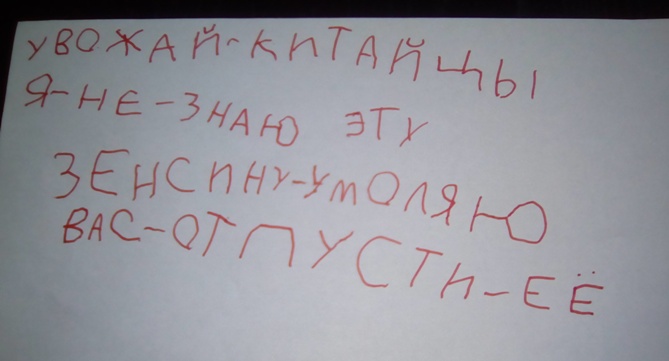 УВОЖАЙ-КИТАЙЦЫ
Я-НЕ-ЗНАЮ ЭТУ
ЗЕНСИНУ-УМОЛЯЮ
ВАС-ОТПУСТИ-ЕЁ